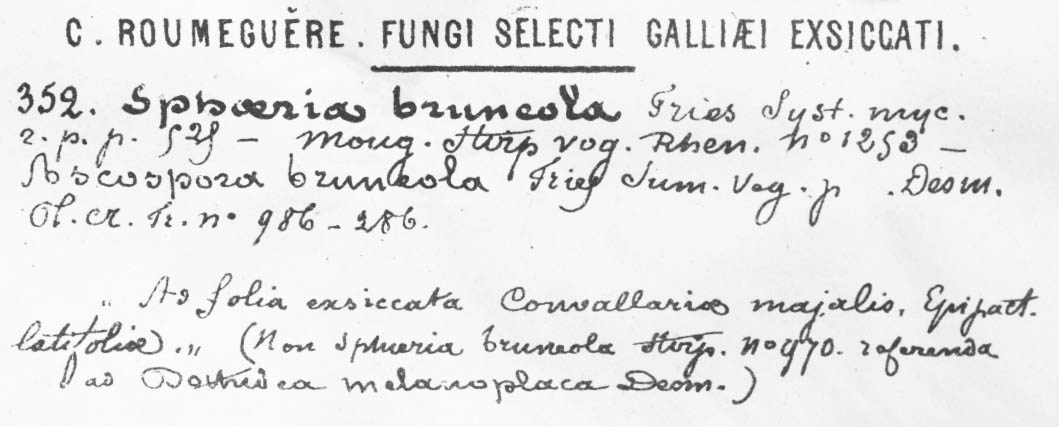 C. ROUMEGUĚRE. FUNGI SELECTI GALLIÆI EXSICCATI.
352. Sphæria bruneola Fries Syst. myc.
2. p. p. 525 – Moug. Stirp vog. Rhen. no 1253 –
Ascospora bruneola Fries Sum. Veg. p . Desm.
Pl. cr. Fr. no 986 – 286.
„ Ad folia exsiccata Convallariæ majalis, Epipact.
latifoliæ.„ (Non Sphæria bruneola Stirp. no 970. referenda
ad melanoplaca Desm.)